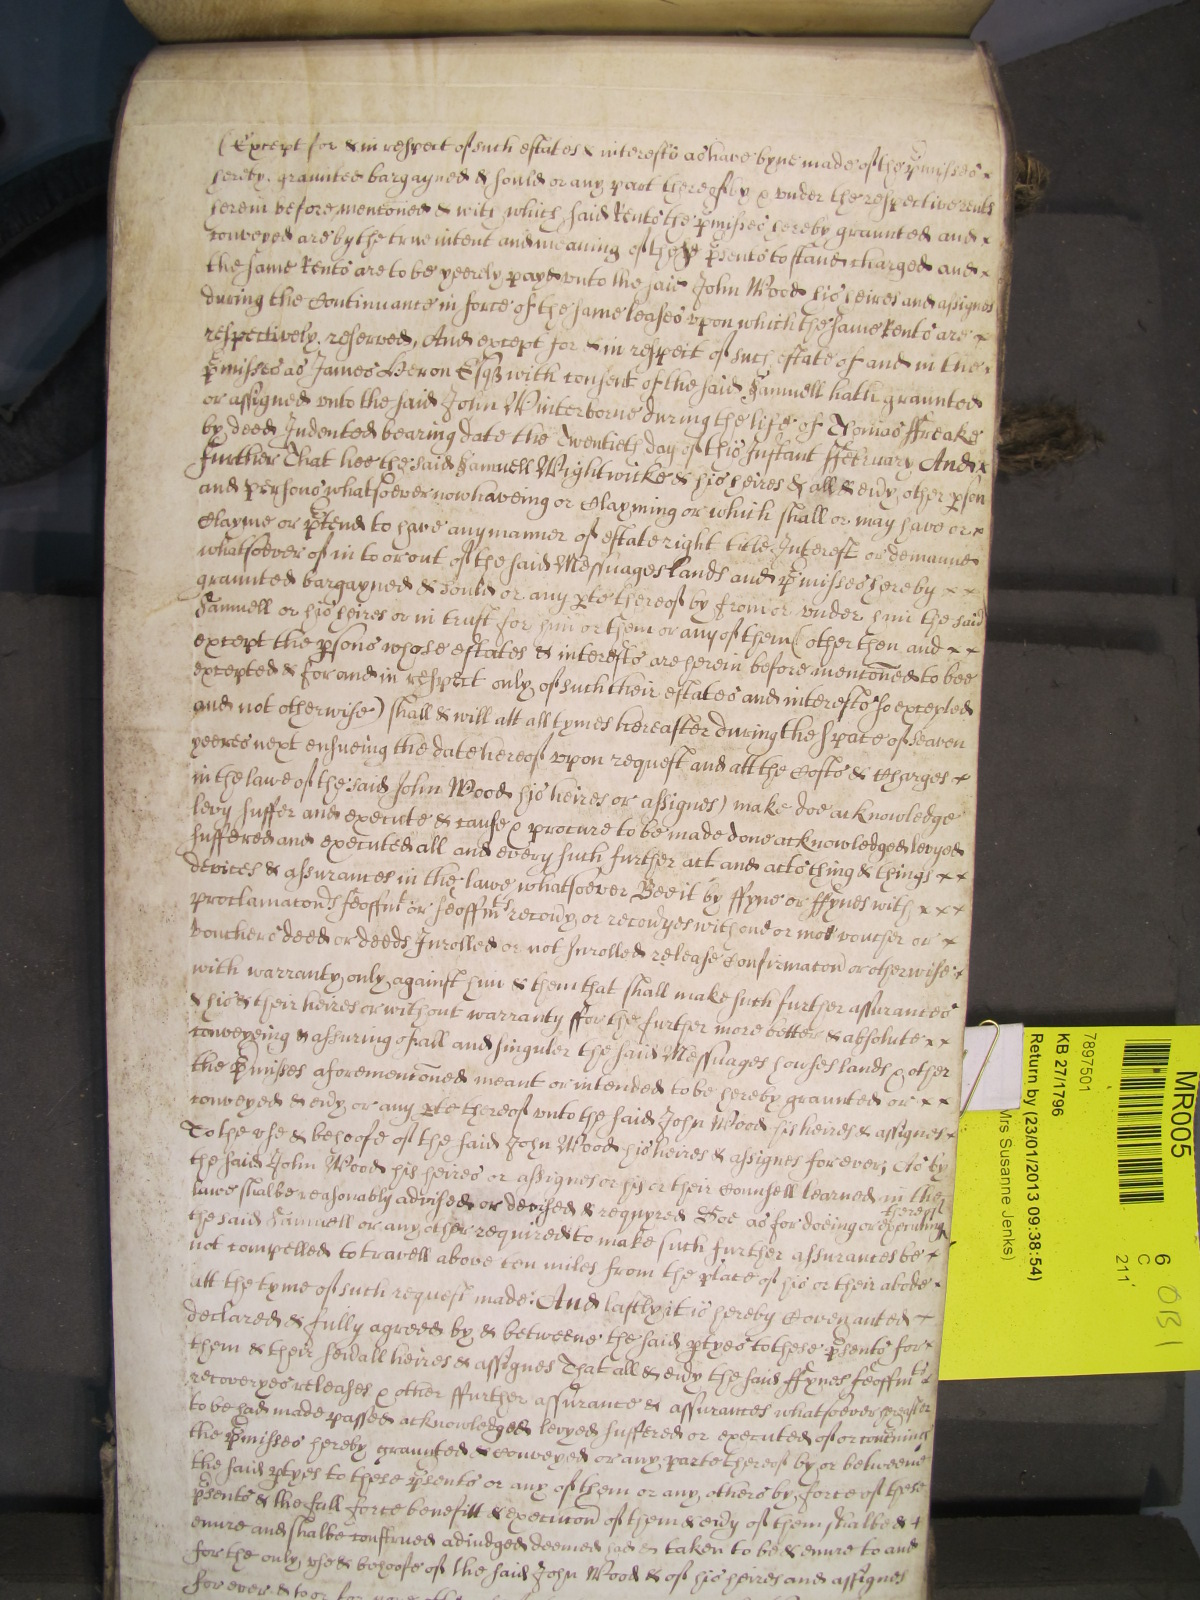 (Except for & in respect of such estates & interests as have byne made of the p̄misses x
hereby graunted bargayned & sould or any part thereof by & under the respective rents
herein before mentioned & with which said Rents the p̄misses hereby graunted and x
conveyed are by the true intent and meaning of these p̄sents to stand charged and x
the same Rents are to be yeerely payd unto the said John Wood his heires and assignes
during the Continuance in force of the same leases upon which the same Rents are x
respectively reserved, And except for & in respect of such estate of and in the
p̄misses as James Heron Esqʒ with consent of the said Samuell hath graunted
or assigned unto the said John Winterborne during the life of Thomas ffreake
by deed Indented bearing date the Twentieth day of this Instant ffebruary And x
further That hee the said Samuell Wightwicke & his heires & all & eṽy other pson
and persons whatsoever now haveing or Clayming or which shall or may have or x
Clayme or p̄tend to have any manner of estate right title Interest or demaund
whatsoever of in to or out of the said Messuages Lands and p̄misses hereby x x
graunted bargayned & sould or any pte thereof by from or under him the said
Samuell or his heires or in trust for him or them or any of them (other then and x x
except the psons whose estates & interests are herein before menc̄oned to bee
excepted & for and in respect only of such their estates and interests so excepted
and not otherwise) shall & will att all tymes hereafter during the space of Seaven
yeeres next ensueing the date hereof upon request and att the Costs & Charges x
in the lawe of the said John Wood his heires or assignes) make doe acknowledge
levy suffer and execute & cause & procure to be made done acknowledged levyed
suffered and executed all and every such further act and acts thing & things x x
devices & assurances in the lawe whatsoever Bee it by ffyne or ffynes with x x x
proclamacons feoffmt or feoffmts recoṽy or recoṽyes with one or more voucher or x
vouchers deed or deeds Inrolled or not Inrolled release Confirmacon or otherwise x
with warranty only against him & them that shall make such further assurances
& his & their heires or without warranty ffor the further more better & absolute x x
conveyeing & assuring of all and singuler the said Messuages houses lands & other
the p̄misses aforemenc̄oned meant or intended to be hereby graunted or x x
conveyed & eṽy or any pte thereof unto the said John Wood his heires & assignes x
To the use & behoofe of the said John Wood his heires & assignes for ever; As by
the said John Wood his heires or assignes or his or their Counsell learned in the
lawe shalbe reasonably advised or devised & requyred Soe as for doeing or executing thereof
the said Samuell or any other required to make such further assurances be x
not compelled to travell above ten miles from the place of his or their abode x
att the tyme of such request made: And lastly it is hereby Covenanted x
declared & fully agreed by & betweene the said ptyes to these p̄sents for x
them & their seṽall heires & assignes That all & eṽy the said ffynes feoffmts
recoveryes releases & other ffurther assurance & assurances whatsoever hereafter
to be had made passed acknowledged levyed suffered or executed of or concerning
the p̄misses hereby graunted & conveyed or any parte thereof by or betweene
the said ptyes to these p̄sents or any of them or any others by force of these
p̄sents & the full force benefitt & execuc̄on of them & eṽy of them shalbe & x
enure and shalbe construed adiudged deemed had & taken to be & enure to and
for the only use & behoofe of the said John Wood & of his heires and assignes
for ever & to or for
MR005
7897501
KB 27/1796
Return by (23/01/2013 09:38:54)
Mrs Susanne Jenks)
6
C
211